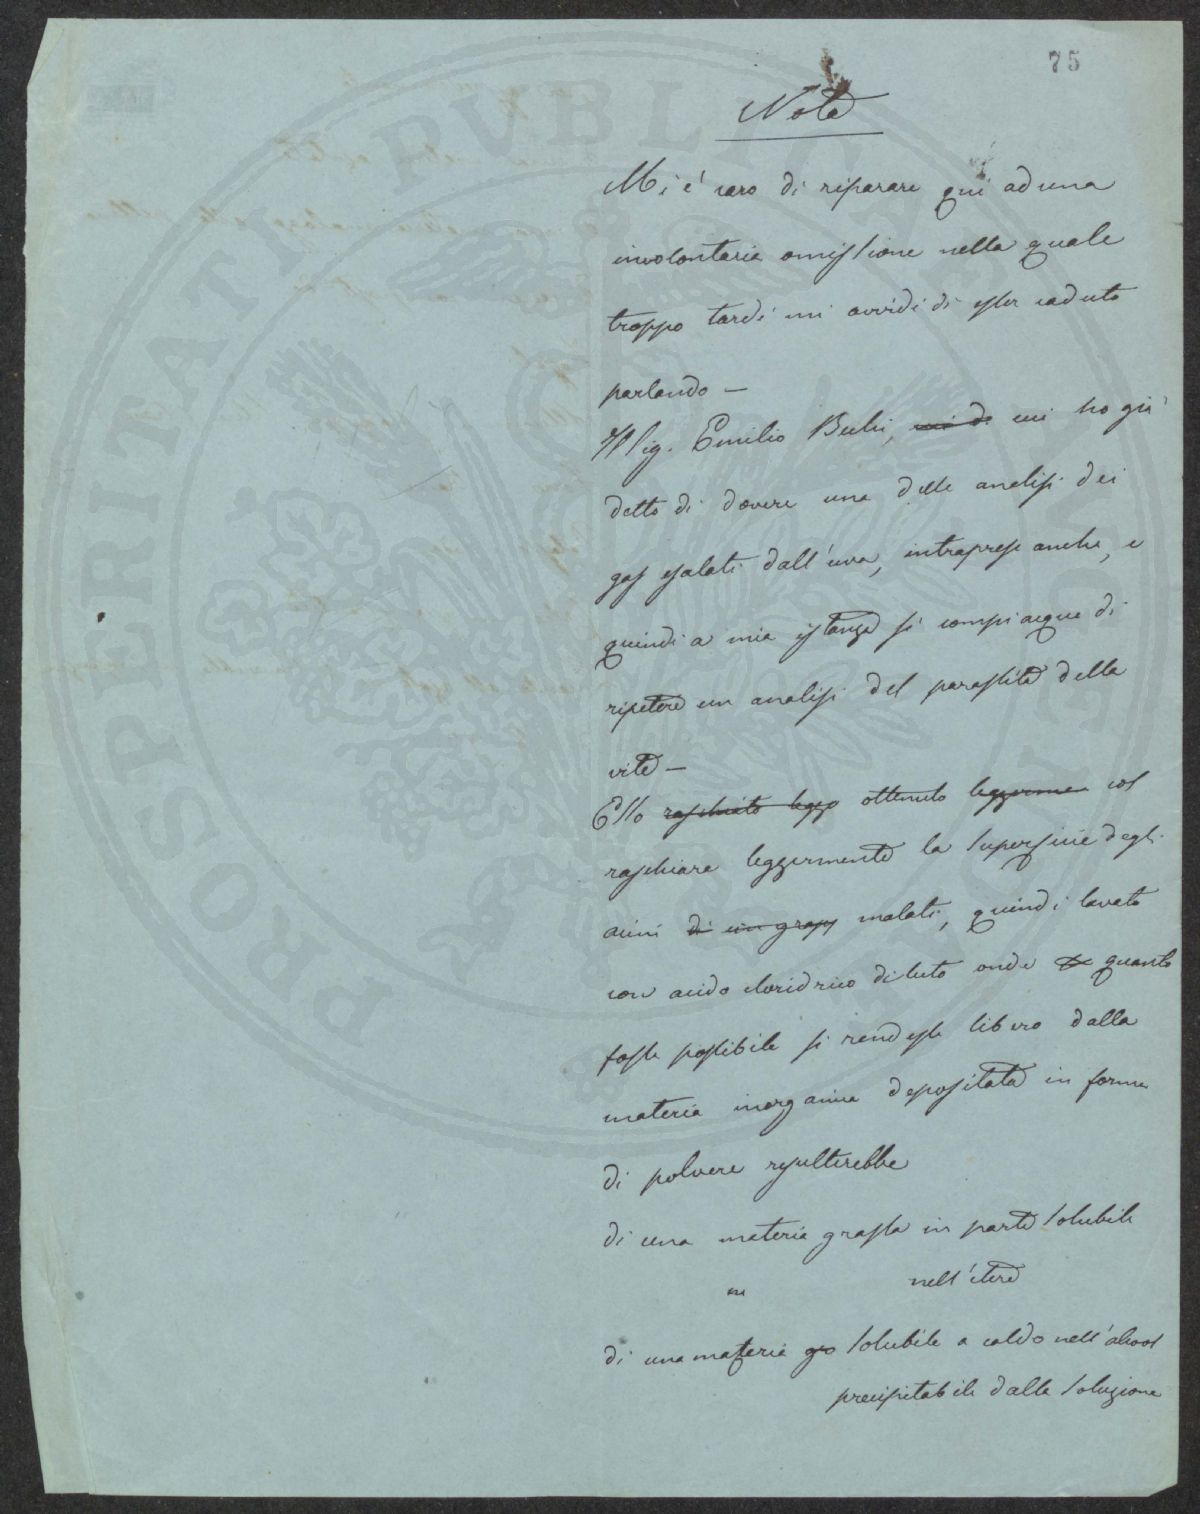 75
Nota
Mi è caro di riparare qui ad una
involontaria omissione nella quale
troppo tardi mi avvidi di esser caduto
parlando —
Il Sig. Emilio Bechi, cui ho già
detto di dovere una delle analisi dei
gas esalati dall'uva, intraprese anche, e
quindi a mia istanza si compiacque di
ripetere un analisi del parassita della
vite —
Esso raschiato legge ottenuto leggerme col
raschiare leggermente la superficie degli
acini di un grapp malati, quindi lavato
con acido cloridrico diluto onde quanto
fosse possibile si rendesse libero dalla
materia inorganica depositata in forma
di polvere resulterebbe
di una materia grassa in parte solubile
nell'etere
di una materia gra solubile a caldo nell'alcool
precipitabile dalla soluzione
PROSPERITATI PVBLICAE